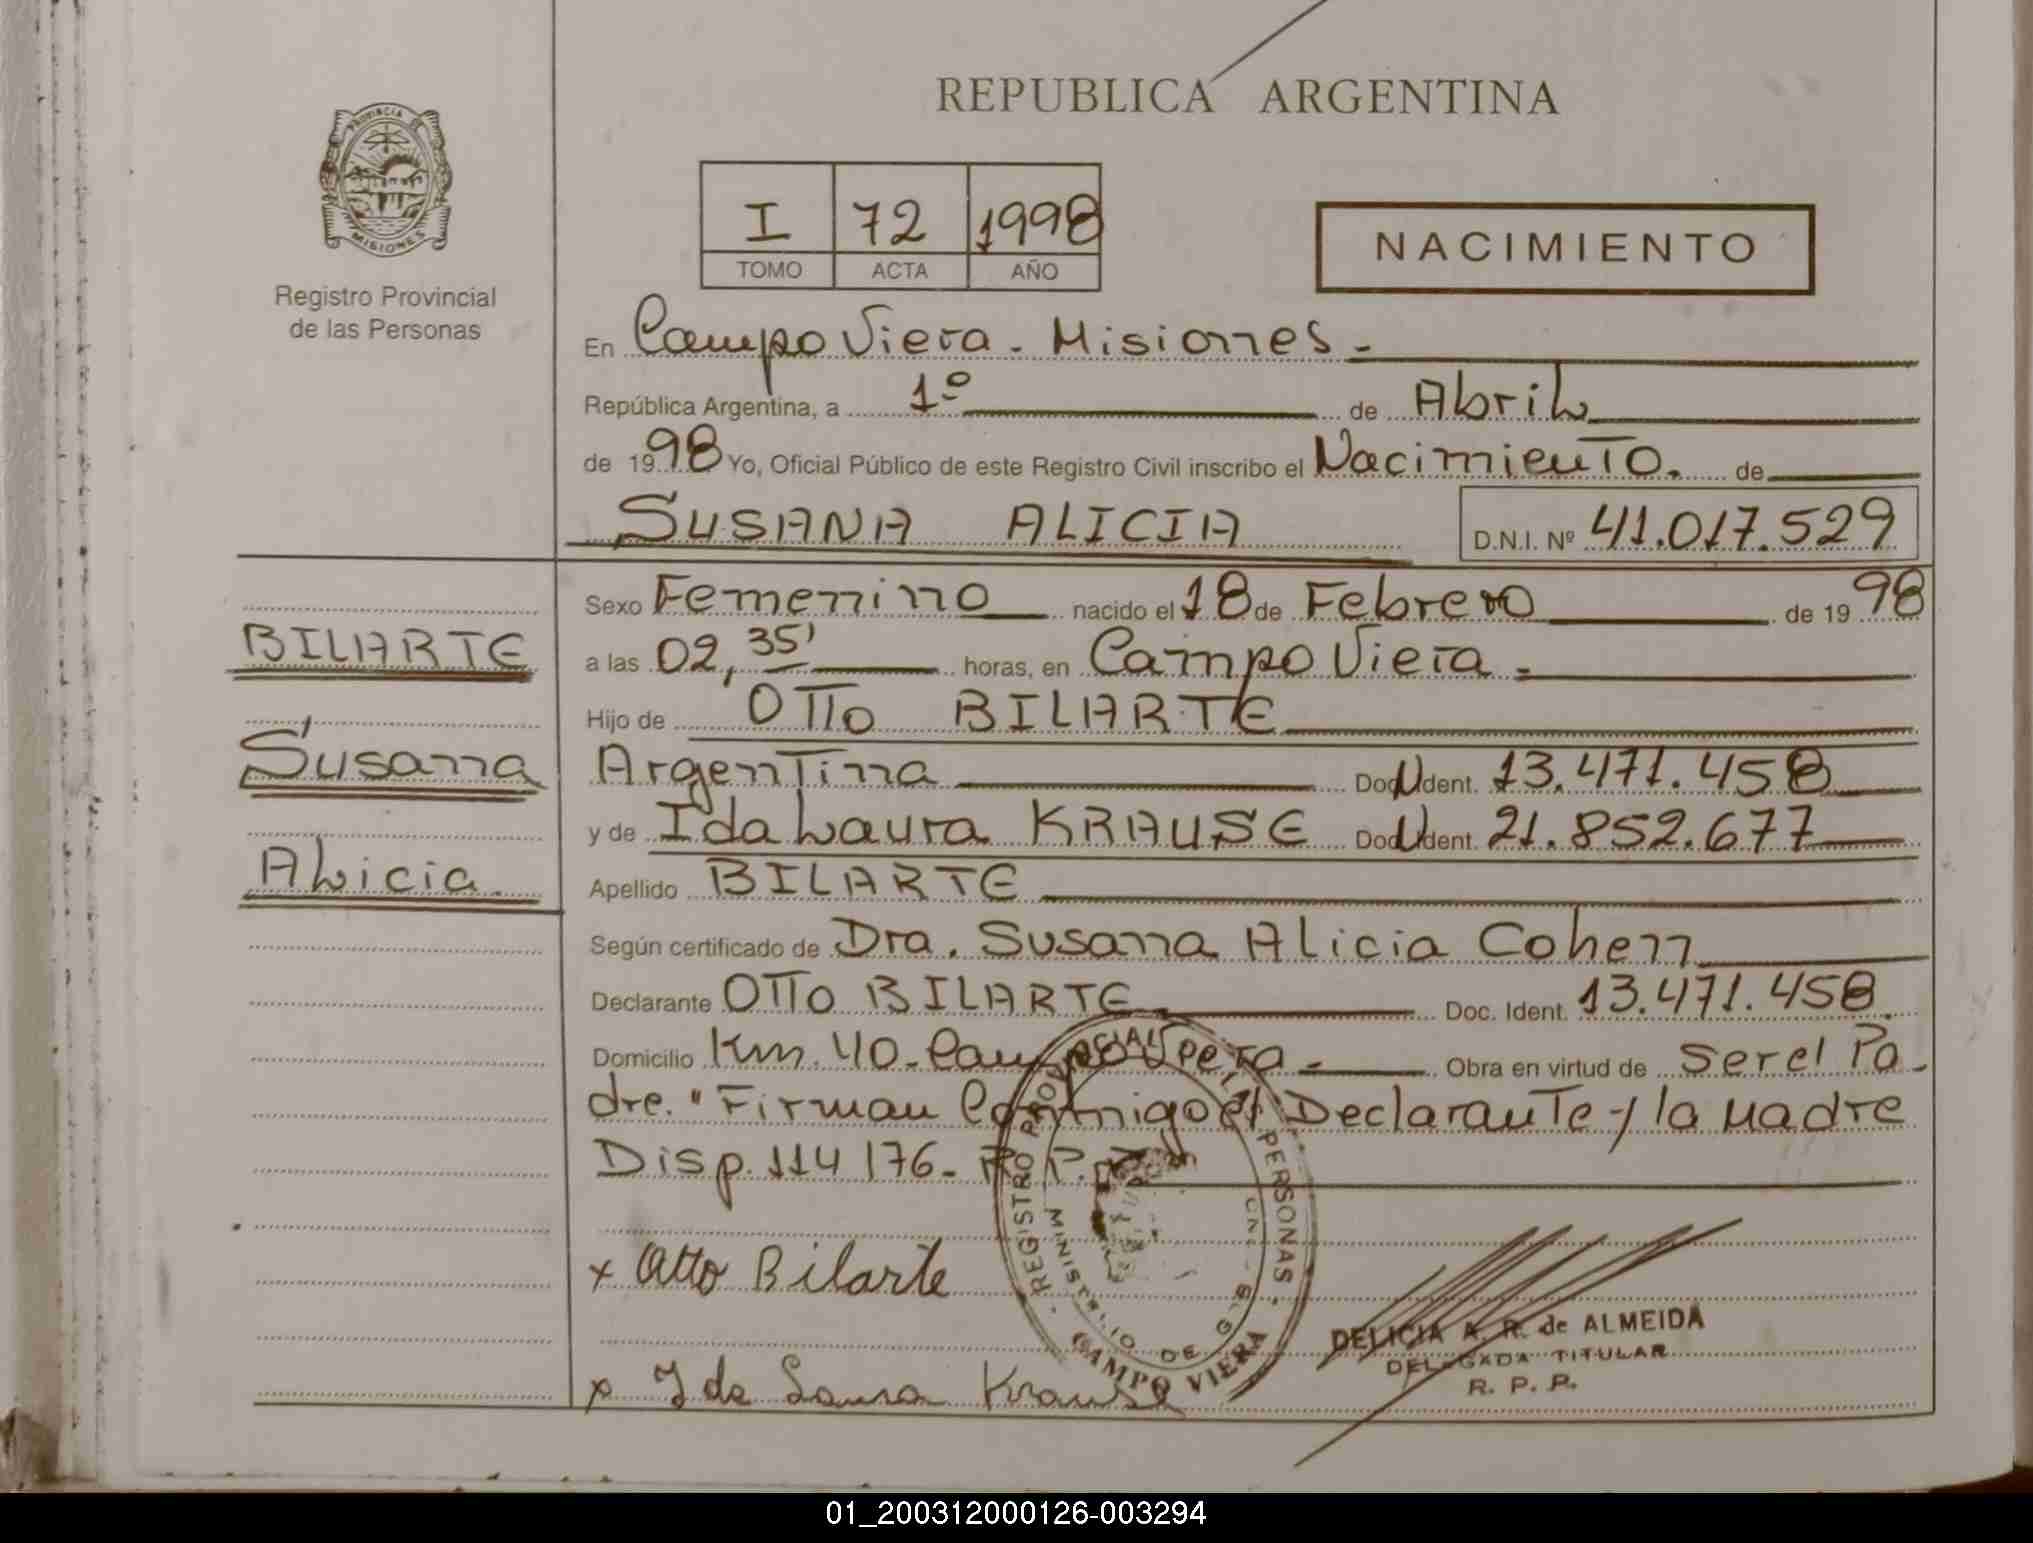 REPUBLICA ARGENTINA
PROVINCIA DE
MISIONES
Registro Provincial
de las Personas
I 72 1998
TOMO ACTA AÑO
NACIMIENTO
En Campo Viera - Misiones -
República Argentina, a 1º de Abril
de 1998 Yo, Oficial Público de este Registro Civil inscribo el Nacimiento. de
SUSANA ALICIA D.N.I. Nº 41.017.529
BILARTE
Susana
Alicia
Sexo Femenino nacido el 18 de Febrero de 1998
a las 02,35' horas, en Campo Viera -
Hijo de OTTO BILARTE
Argentina Doc. Ident. 13.471.458
y de Ida Laura KRAUSE Doc. Ident. 21.852.677
Apellido BILARTE
Según certificado de Dra. Susana Alicia Cohen
Declarante OTTO BILARTE Doc. Ident. 13.471.458
Domicilio Km. 40 - Campo Viera - Obra en virtud de ser el Pa-
dre. "Firman Conmigo el Declarante y la Madre
Disp. 114/76 - R.P.P.
x Otto Bilarte
x Ida Laura Krause
REGISTRO PROVINCIAL PERSONAS
MINISTERIO DE
CAMPO VIERA
DELICIA A. R. de ALMEIDA
DELEGADA TITULAR
R. P. P.
01_200312000126-003294